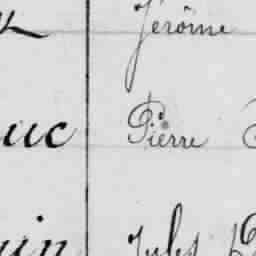 Jérôme
uc Pierre
in Jules